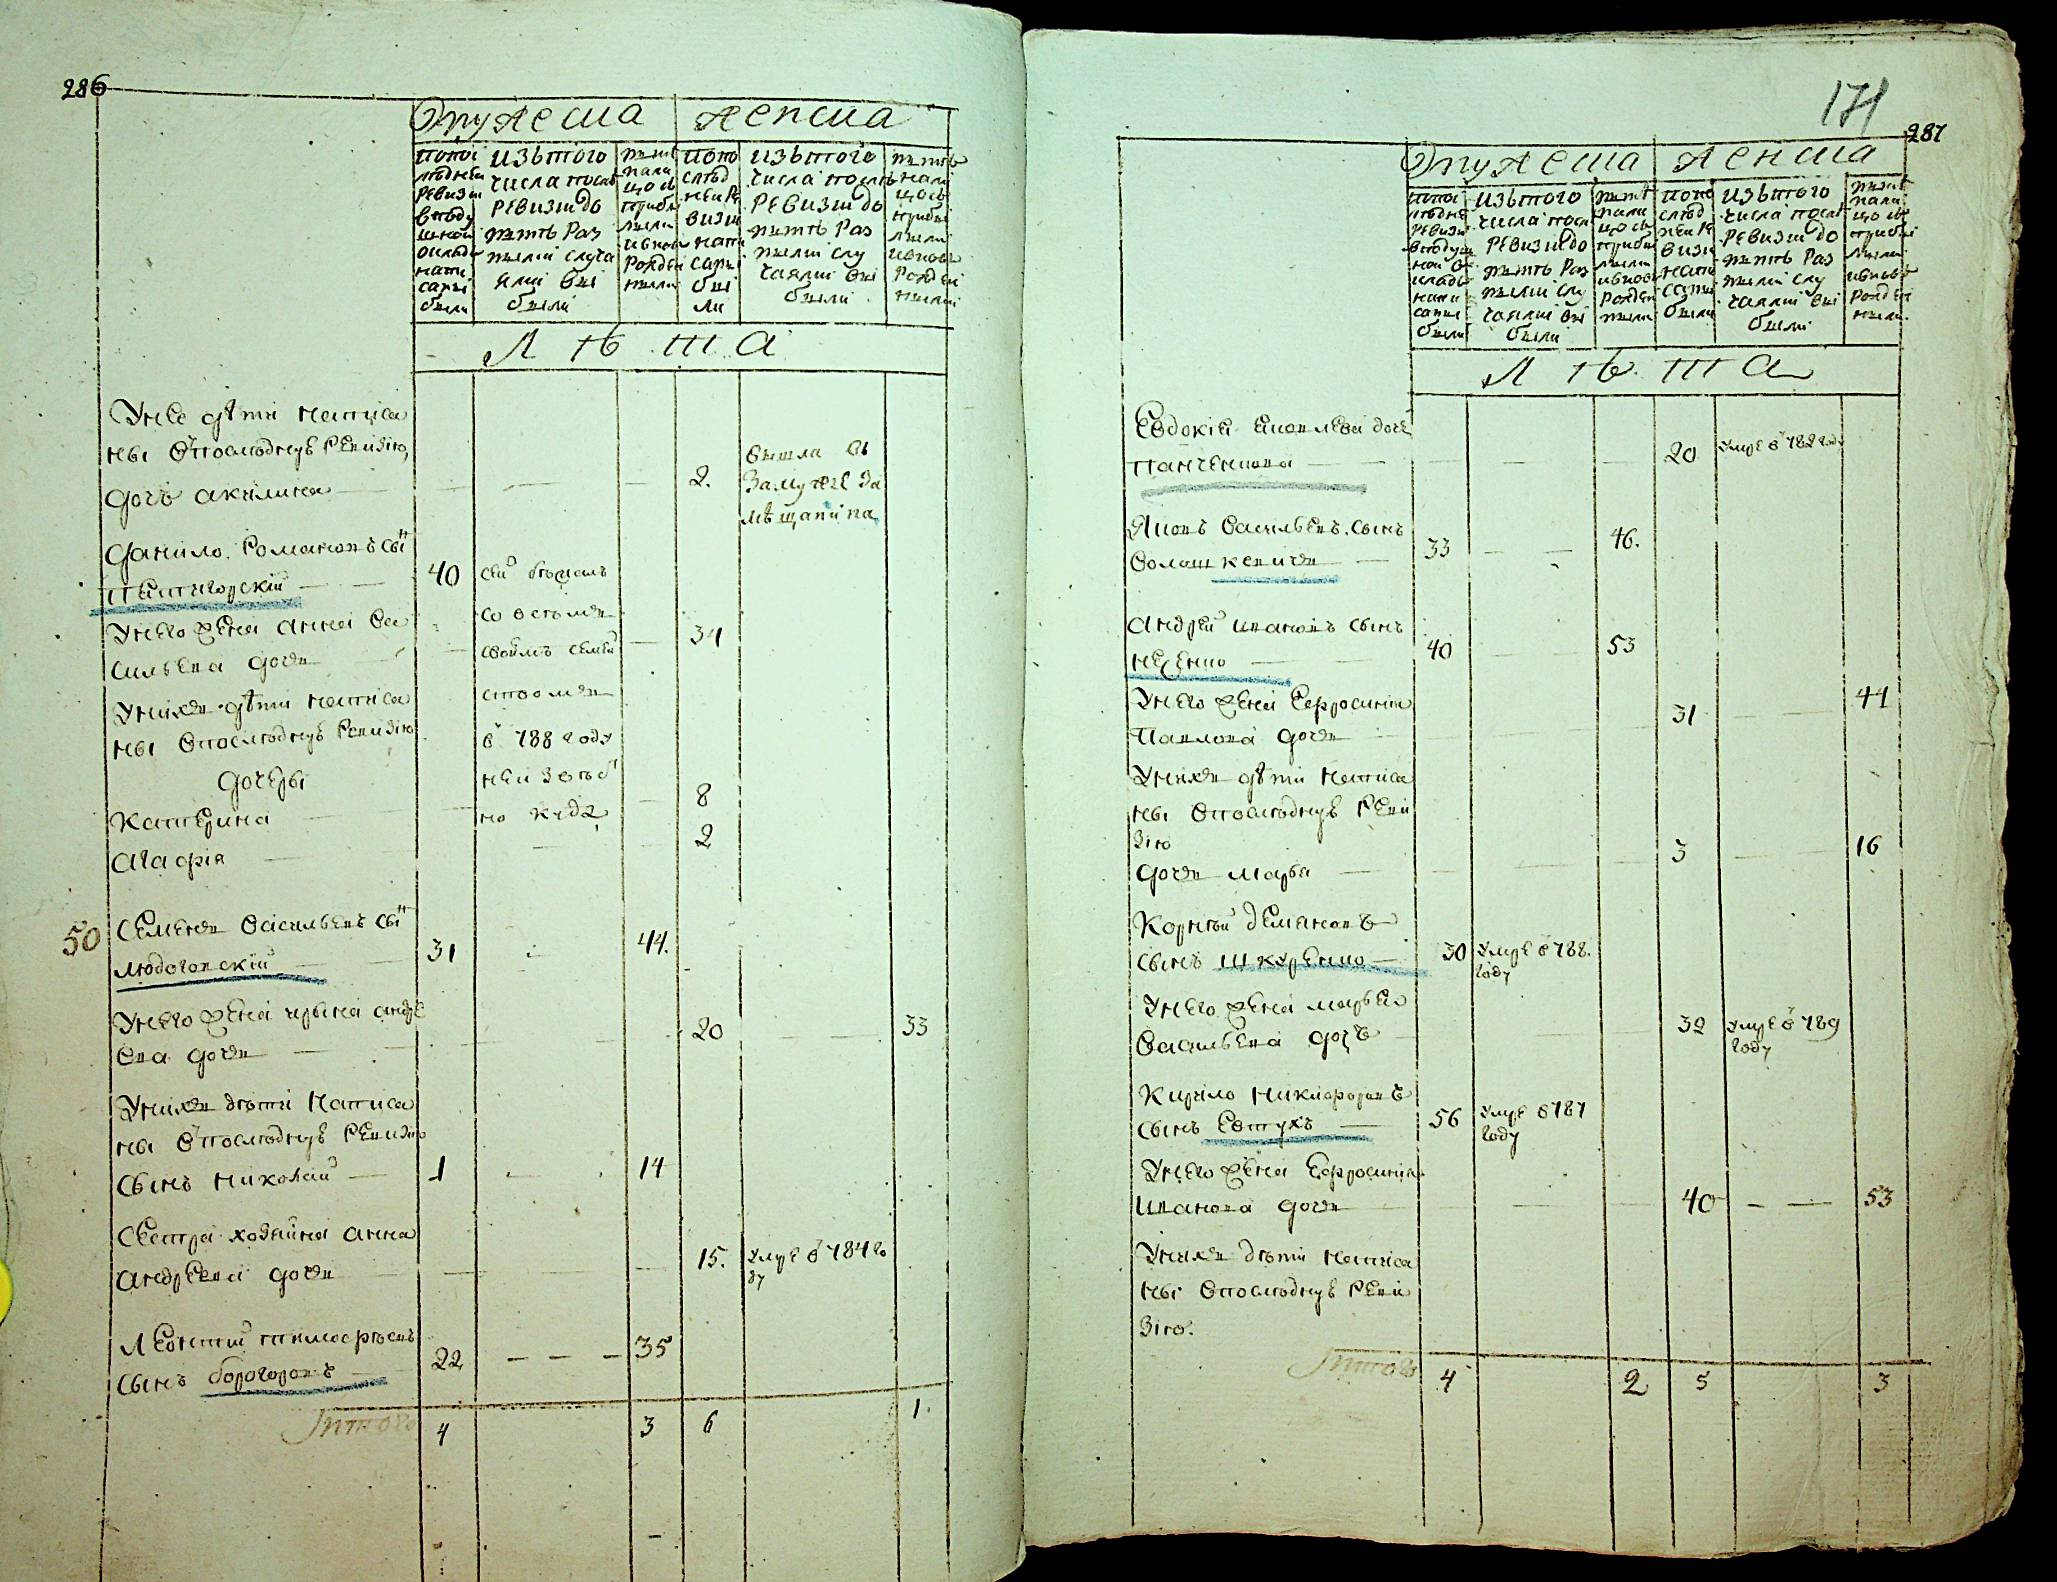 286
Мужеска женска
попос
леднеи
ревизи
в поду
шной
окладъ
напи
саны
были
изъ того
числа после
ревизии до
ныне раз
ными случа
ями вы
были
ныне
нали
цо съ
прибы
лыми
и вновь
рожден
ными
по по
след
ней ре
визии
напи
саны
бы
ли
изъ того
числа после
ревизии до
ныне раз
ными слу
чаями вы
были
ныне
нали
цо съ
прибы
лыми
и вновь
рожден
ными
Лѣта
У нее дѣти написа
ны в последнуъ ревизию
дочь акилина 2. вышла въ
замужъе за
мѣщанина
Данило Романовъ сынъ
Пятигорский 40 сей бежалъ
со всемъ
своимъ семей
ством
в 788 году
неизвест
но куда
У него жена анна ва
сильева дочь 34
У нихъ дѣти написа
ны в последнуъ ревизию
дочери
Катерина 8
Агафия 2
50
Семенъ Васильевъ сынъ
Людоговский 31 44.
У него жена ирина андре
ева дочь 20 33
У нихъ дѣти написа
ны в последнуъ ревизию
сынъ николай 1 14
Сестра хозяйна анна
андреева дочь 15. умре в 784 го
ду
Леонтий тимофѣевъ
сынъ борогоровъ 22 35
Итого 4 3 6 1.
171
287
Мужеска женска
попос
ледне
ревизи
в подуш
ной о
кладъ
напи
саны
были
изъ того
числа после
ревизии до
ныне раз
ными слу
чаями вы
были
ныне
нали
цо съ
прибы
лыми
и вновь
рожден
ными
по по
след
ней ре
визии
напи
саны
были
изъ того
числа после
ревизии до
ныне раз
ными слу
чаями вы
были
ныне
нали
цо съ
прибы
лыми
и вновь
рожден
ными
Лѣта
Евдокия Яковлева дочь
Панченкова 20 умре в 782 году
Яковъ Васильевъ сынъ
Волошкевичъ 33 46.
Андрей ивановъ сынъ
Неженко 40 53
У него жена Ефросиния
Павлова дочь 31 44
У нихъ дѣти написа
ны в последнуъ реви
зию
дочь марья 3 16
Корней демяновъ
сынъ Шкуренко 30 умре в 788.
году
У него жена марья
Васильева дочь 32 умре в 789
году
Кирило никифоровъ
сынъ Евтухъ 56 умре в 787
году
У него жена Ефросиния
иванова дочь 40 53
У нихъ дѣти написа
ны в последнуъ реви
зию.
Итого 4 2 5 3